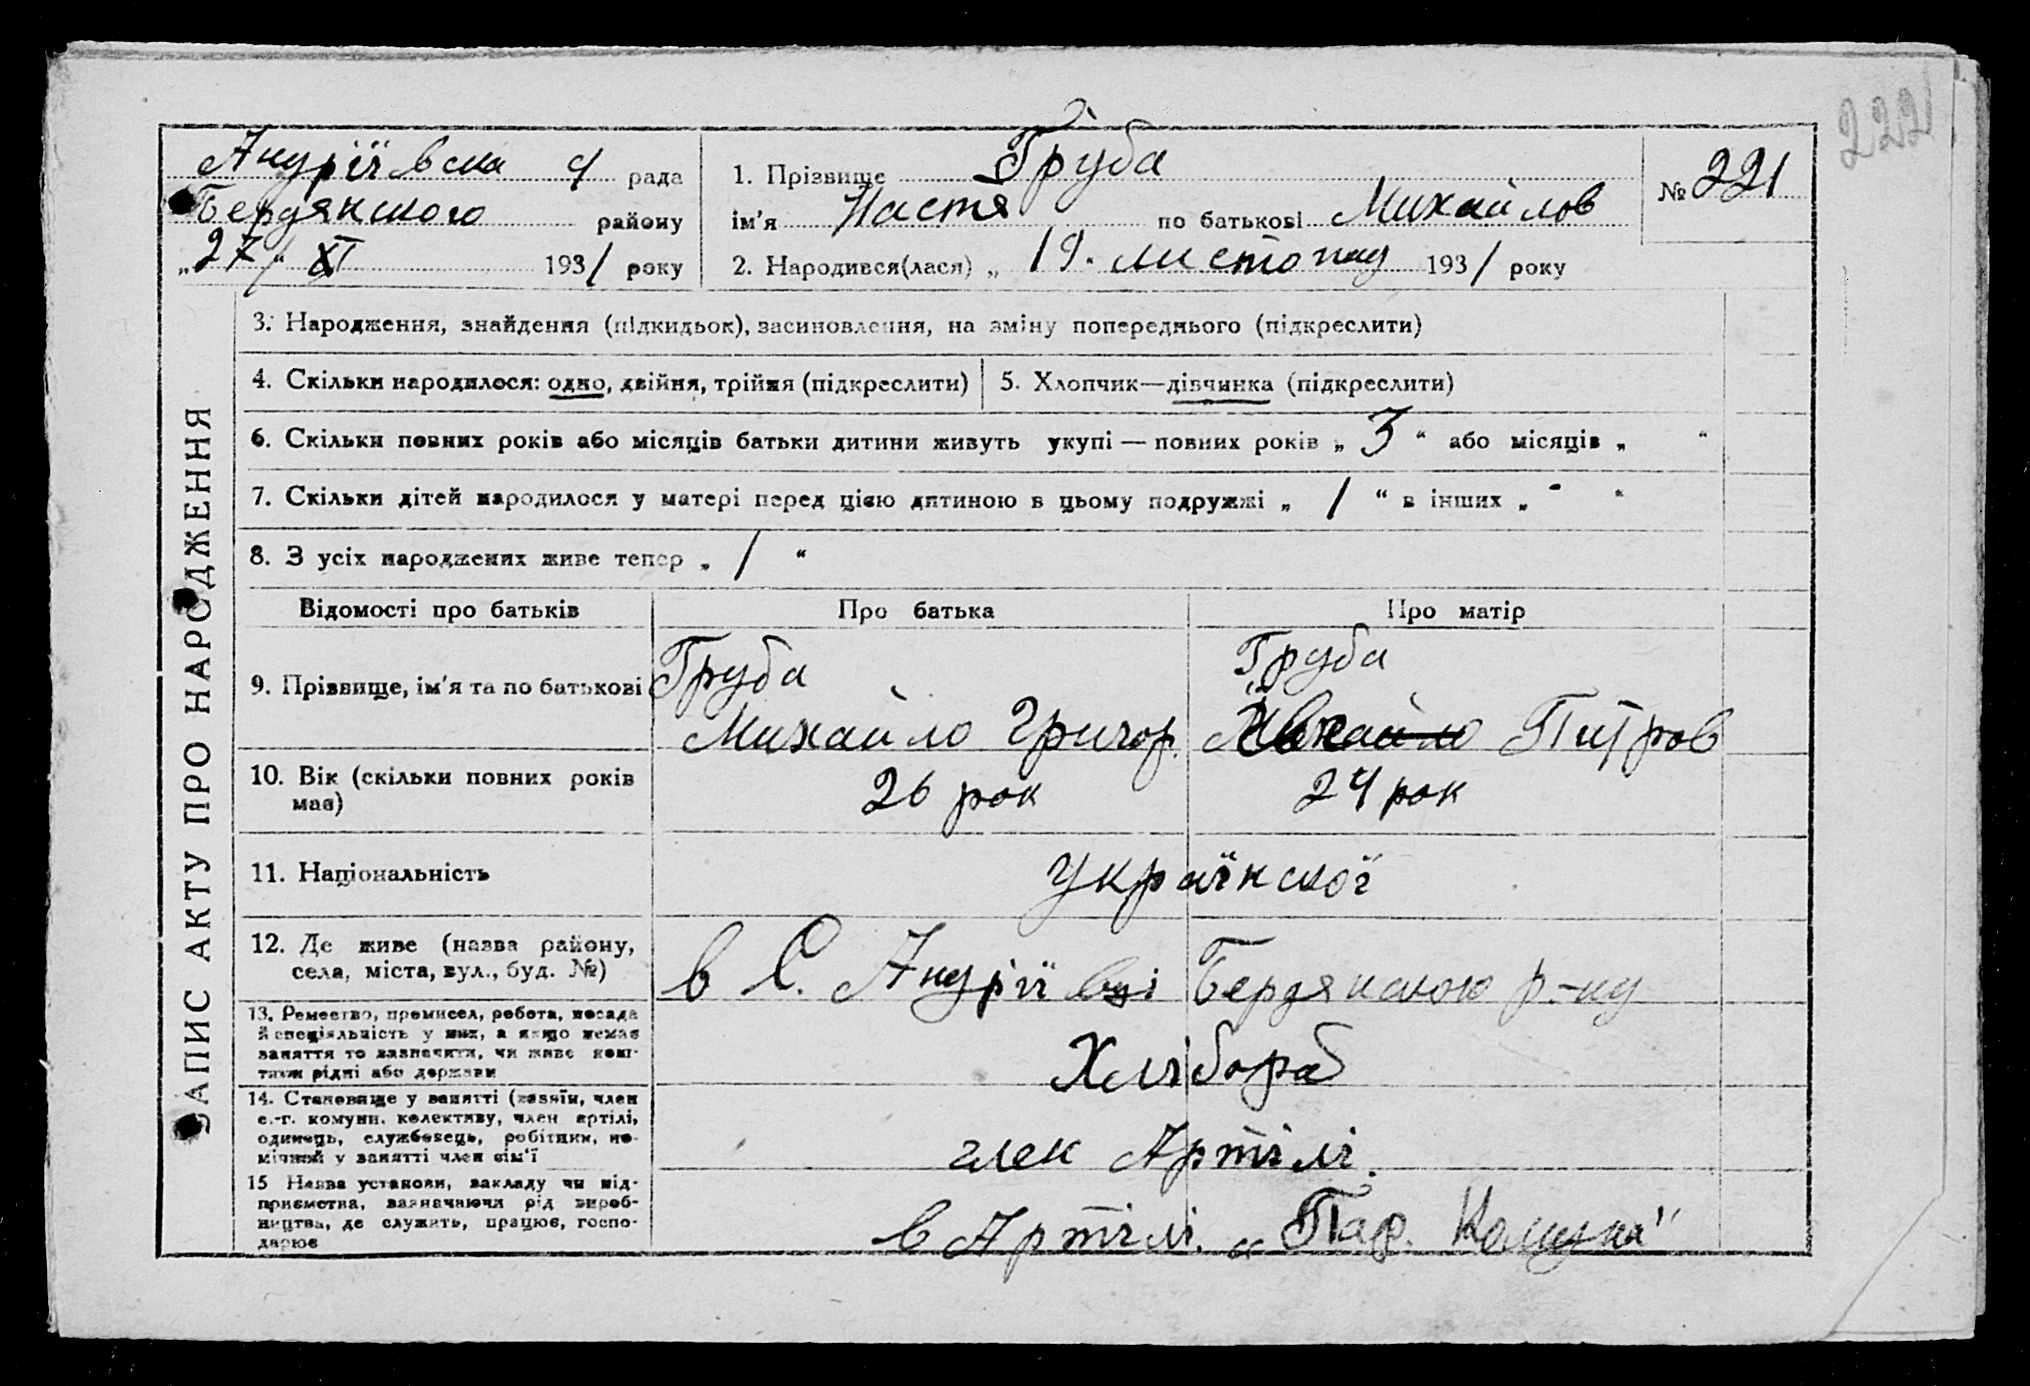 222
Андріївска 4 рада
Бердянского району
„27" XI 1931 року
1. Прізвище Груба
ім'я Настя по батькові Михайлов
2. Народився(лася) „ 19. листопад 1931 року
№ 221
ЗАПИС АКТУ ПРО НАРОДЖЕННЯ
3. Народження, знайдення (підкидьок), засиновлення, на зміну попереднього (підкреслити)
4. Скільки народилося: одно, двійня, трійня (підкреслити)
5. Хлопчик—дівчинка (підкреслити)
6. Скільки повних років або місяців батьки дитини живуть укупі — повних років „ 3 “ або місяців „ “
7. Скільки дітей народилося у матері перед цією дитиною в цьому подружжі „ 1 “ в інших „ - “
8. З усіх народжених живе тепер „ 1 “
Відомості про батьків Про батька Про матір
9. Прізвище, ім'я та по батькові
Груба
Михайло Григор.
Груба
Питров
10. Вік (скільки повних років
має)
26 рок 24 рок
11. Національність
Українскої
12. Де живе (назва району,
села, міста, вул., буд. №)
в С. Андріївці Бердянского р-ну
13. Ремество, промисел, робота, посада
й спеціяльність у них, а якщо немає
заняття то зазначити, чи живе кошт
тами рідні або держави
Хлібороб
14. Становище у занятті (хазяїн, член
с.-г. комуни, колективу, член артілі,
одинець, службовець, робітник, по-
мічний у занятті член сім'ї
член Артілі.
15 Назва установи, закладу чи під-
приємства, зазначаючи рід вироб-
ництва, де служить, працює, госпо-
дарює
в Артілі. „Пар. Комуна"